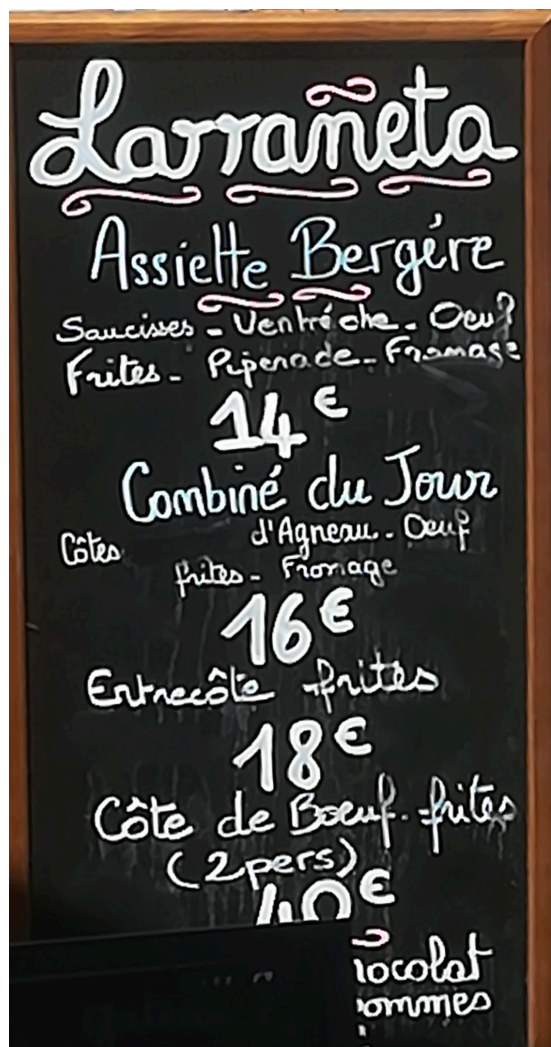 Larrañeta
Assiette Bergére
Saucisses - Ventréche - Oeuf
Frites - Piperade - Fromage
14 €
Combiné du Jour
Côtes d'Agneau - Oeuf
frites - Fromage
16 €
Entrecôte frites
18 €
Côte de Boeuf - frites
(2 pers)
40 €